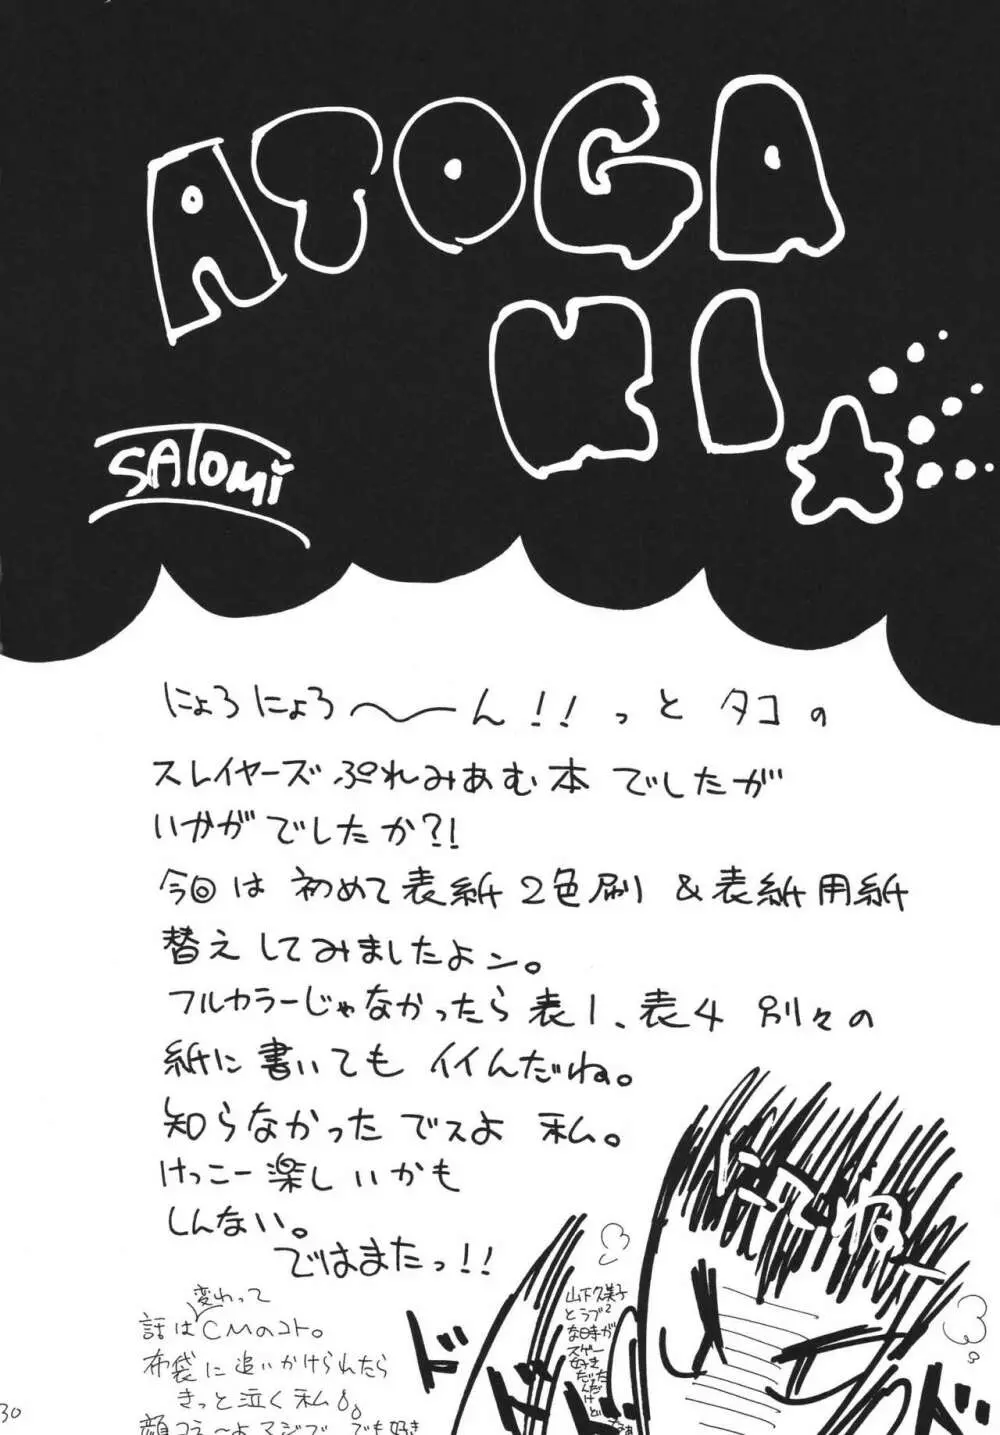 ATOGA
KI
SATOMI
にょろにょろ〜ん!! っと タコの
スレイヤーズぷれみあむ本 でしたが
いかがでしたか?!
今回は 初めて表紙2色刷 &表紙用紙
替えしてみましたよン。
フルカラーじゃなかったら 表1、表4 別々の
紙に書いても イイんだね。
知らなかったでスよ 私。
けっこー楽しいかも
しんない。
ではまたっ!!
変わって
話はCMのコト。
布袋に追いかけられたら
きっと泣く私
顔コえ〜よマジで でも好き
山下久美子
とラブ2
な時が
スゲー
好き
だった
んだ
けど
にてねー
ド
30